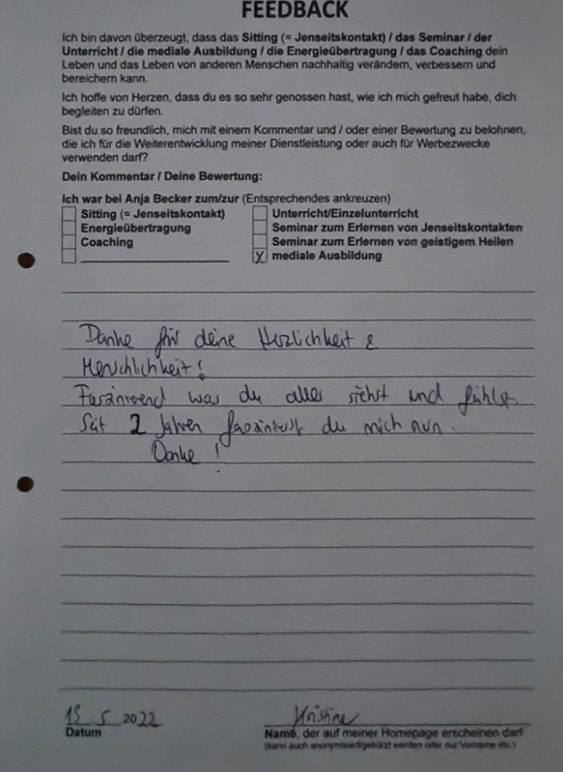 FEEDBACK
Ich bin davon überzeugt, dass das Sitting (= Jenseitskontakt) / das Seminar / der
Unterricht / die mediale Ausbildung / die Energieübertragung / das Coaching dein
Leben und das Leben von anderen Menschen nachhaltig verändern, verbessern und
bereichern kann.
Ich hoffe von Herzen, dass du es so sehr genossen hast, wie ich mich gefreut habe, dich
begleiten zu dürfen.
Bist du so freundlich, mich mit einem Kommentar und / oder einer Bewertung zu belohnen,
die ich für die Weiterentwicklung meiner Dienstleistung oder auch für Werbezwecke
verwenden darf?
Dein Kommentar / Deine Bewertung:
Ich war bei Anja Becker zum/zur (Entsprechendes ankreuzen)
Sitting (= Jenseitskontakt)
Energieübertragung
Coaching
Unterricht/Einzelunterricht
Seminar zum Erlernen von Jenseitskontakten
Seminar zum Erlernen von geistigem Heilen
X mediale Ausbildung
Danke für deine Herzlichkeit &
Menschlichkeit!
Faszinierend was du alles siehst und fühlst.
Seit 2 Jahren faszinierst du mich nun.
Danke!
15 5 2022
Datum
Kristine
Name, der auf meiner Homepage erscheinen darf
(kann auch anonymisiert/gekürzt werden oder nur Vorname etc.)